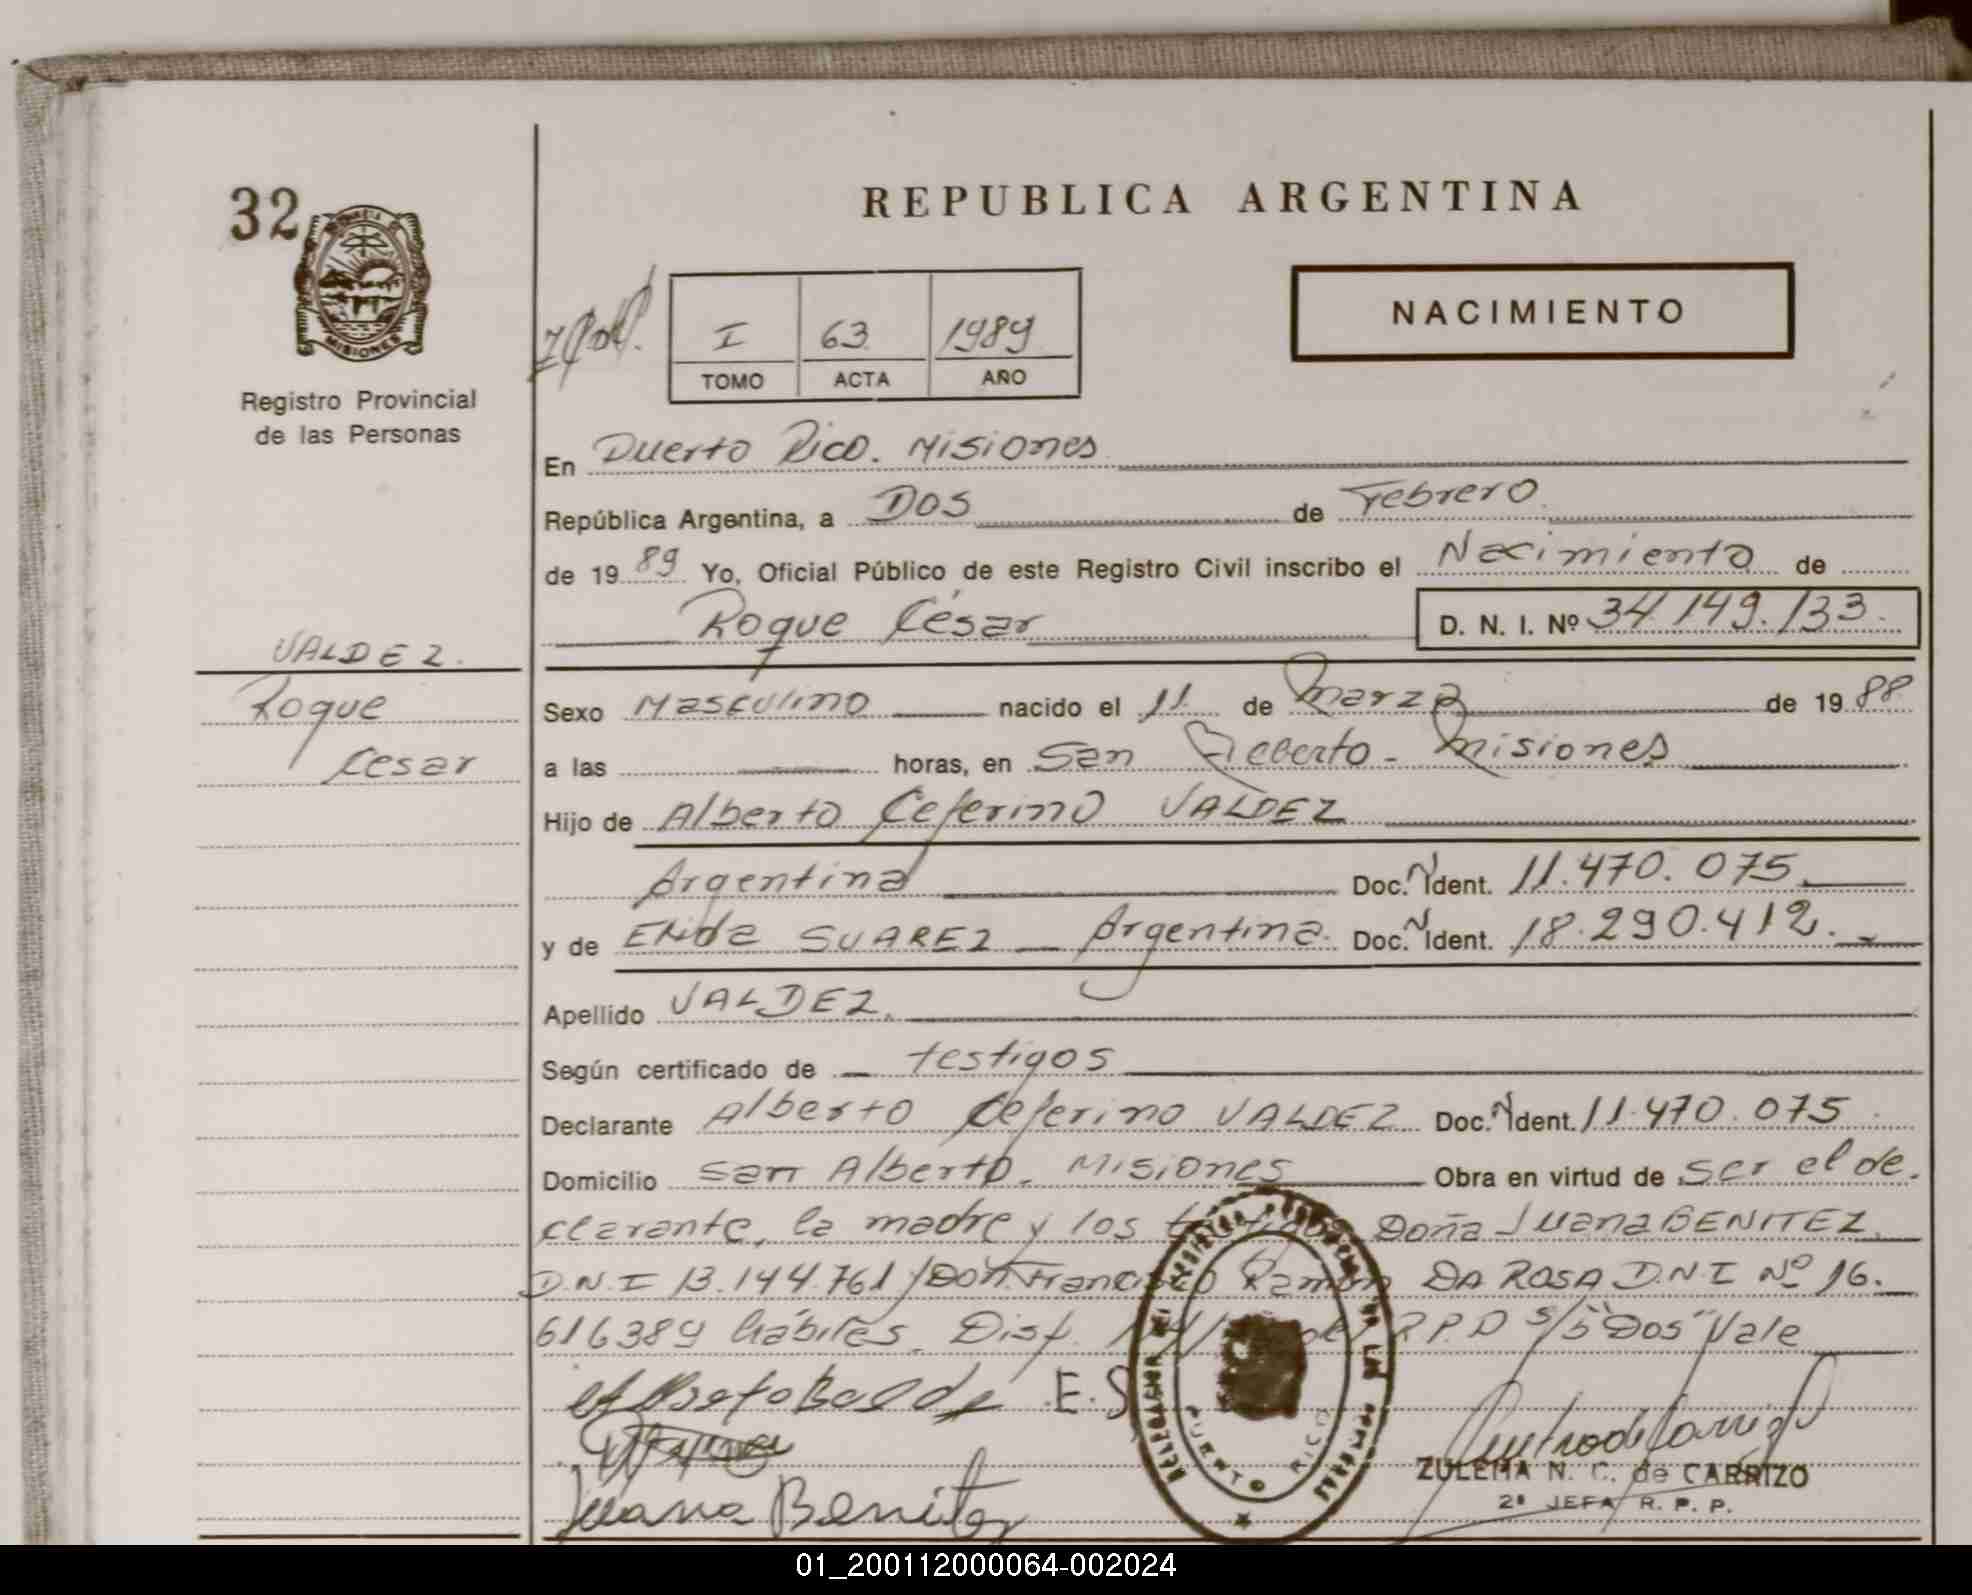 32
MISIONES
Registro Provincial
de las Personas
VALDEZ.
Roque
César
REPUBLICA ARGENTINA
I 63 1989
TOMO ACTA AÑO
NACIMIENTO
En Puerto Rico. Misiones
República Argentina, a Dos de Febrero
de 1989 Yo, Oficial Público de este Registro Civil inscribo el Nacimiento de
Roque César D. N. I. Nº 34.149.133.
Sexo Masculino nacido el 11 de Marzo de 1988
a las horas, en San Alberto - Misiones
Hijo de Alberto Ceferino VALDEZ
Argentina Doc. N Ident. 11.470.075
y de Elida SUAREZ Argentina. Doc. N Ident. 18.290.412.
Apellido VALDEZ.
Según certificado de testigos
Declarante Alberto Ceferino VALDEZ Doc. N Ident. 11.470.075
Domicilio San Alberto. Misiones Obra en virtud de ser el de-
clarante, la madre y los testigos Doña Juana BENITEZ
D.N.I 13.144.761 / Don Francisco Ramón DA ROSA D.N.I Nº 16.
616389 hábiles. Disp. R.P.P S/b "Dos" Vale
E.S
Juana Benitez
PUERTO RICO
ZULEMA N. C. de CARRIZO
2ª JEFA R. P. P.
01_200112000064-002024